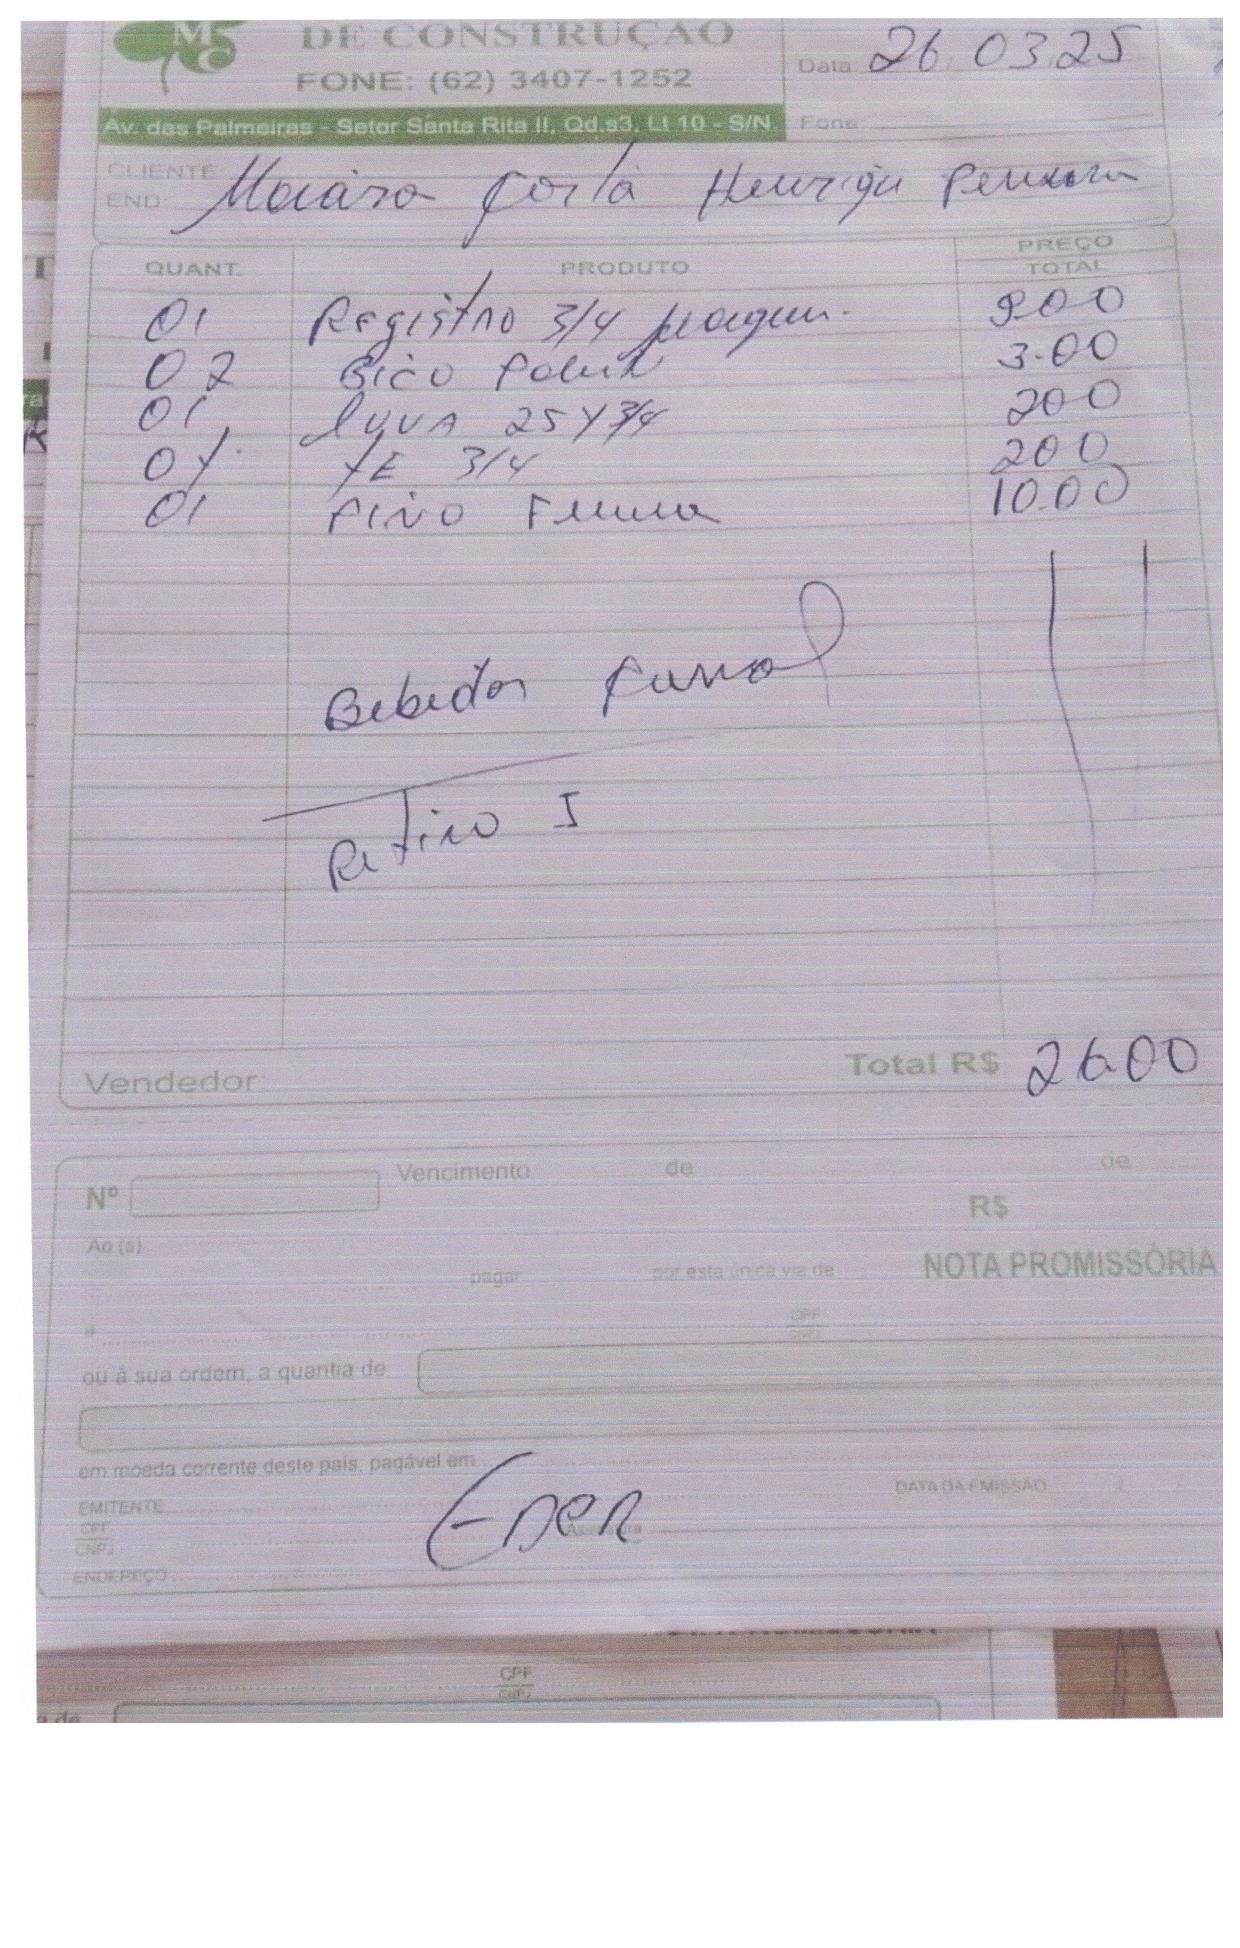 MC
DE CONSTRUÇÃO
FONE: (62) 3407-1252
Av. das Palmeiras - Setor Santa Rita II, Qd.s3, Lt 10 - S/N
Data 26 03 25
Fone:
CLIENTE
END
QUANT. PRODUTO PREÇO
TOTAL
01 Registro 3/4 900
02 Bico 3.00
01 luva 25x3/4 200
01 TE 3/4 200
01 Pino Femea 10.00
Bebedor
Retiro I
Vendedor: Total R$ 26.00
Nº Vencimento de de
R$
Ao (s)
pagar por esta única via de NOTA PROMISSÓRIA
a CPF
CNPJ
ou à sua ordem, a quantia de
em moeda corrente deste país, pagável em
EMITENTE DATA DA EMISSÃO
CPF
CNPJ
Eder
ENDEREÇO
CPF
CNPJ
a de